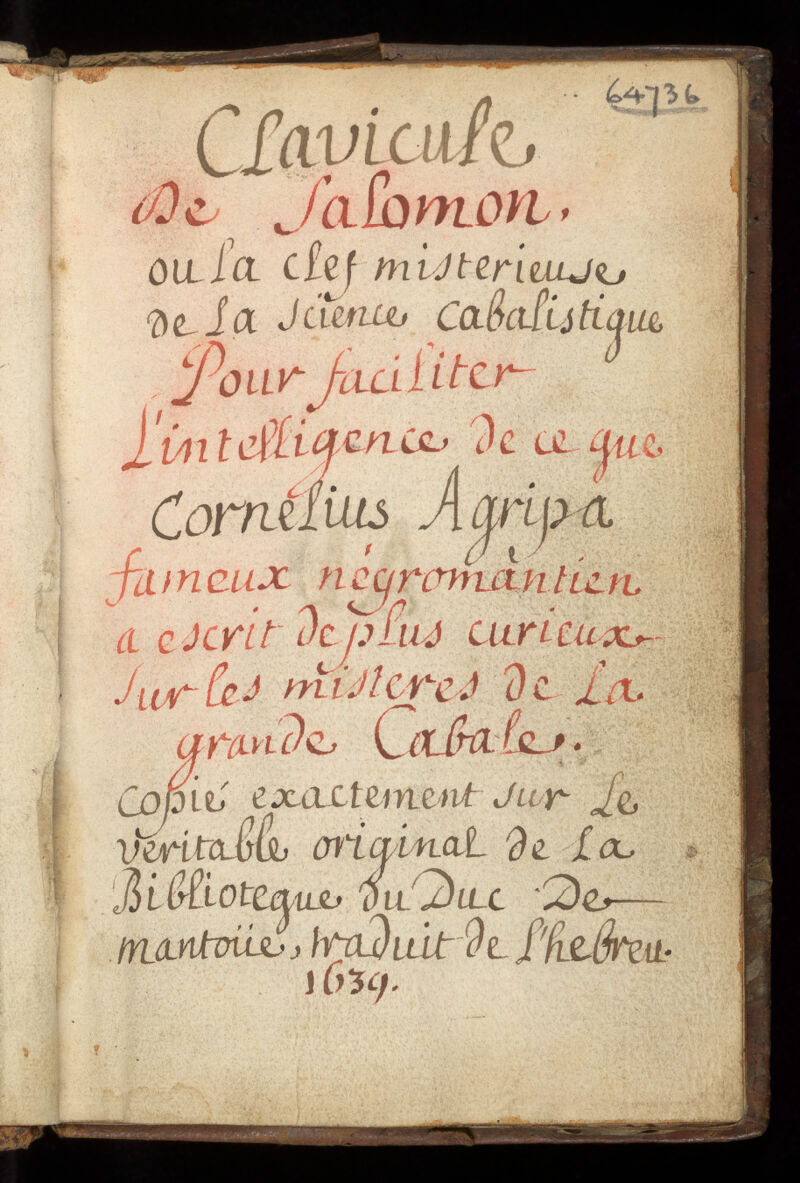 64736
Clavicule
De Salomon,
ou la clef misterieuse
de la sçience cabalistique
Pour faciliter
L'intelligence de ce que
Cornelius Agripa
fameux négromàntien
a escrit de plus curieux
sur les misteres de la
grande Cabale.
Copié exactement sur le
veritable original de la
Biblioteque du Duc De
mantoüe, traduit de l'hebreu.
1639.